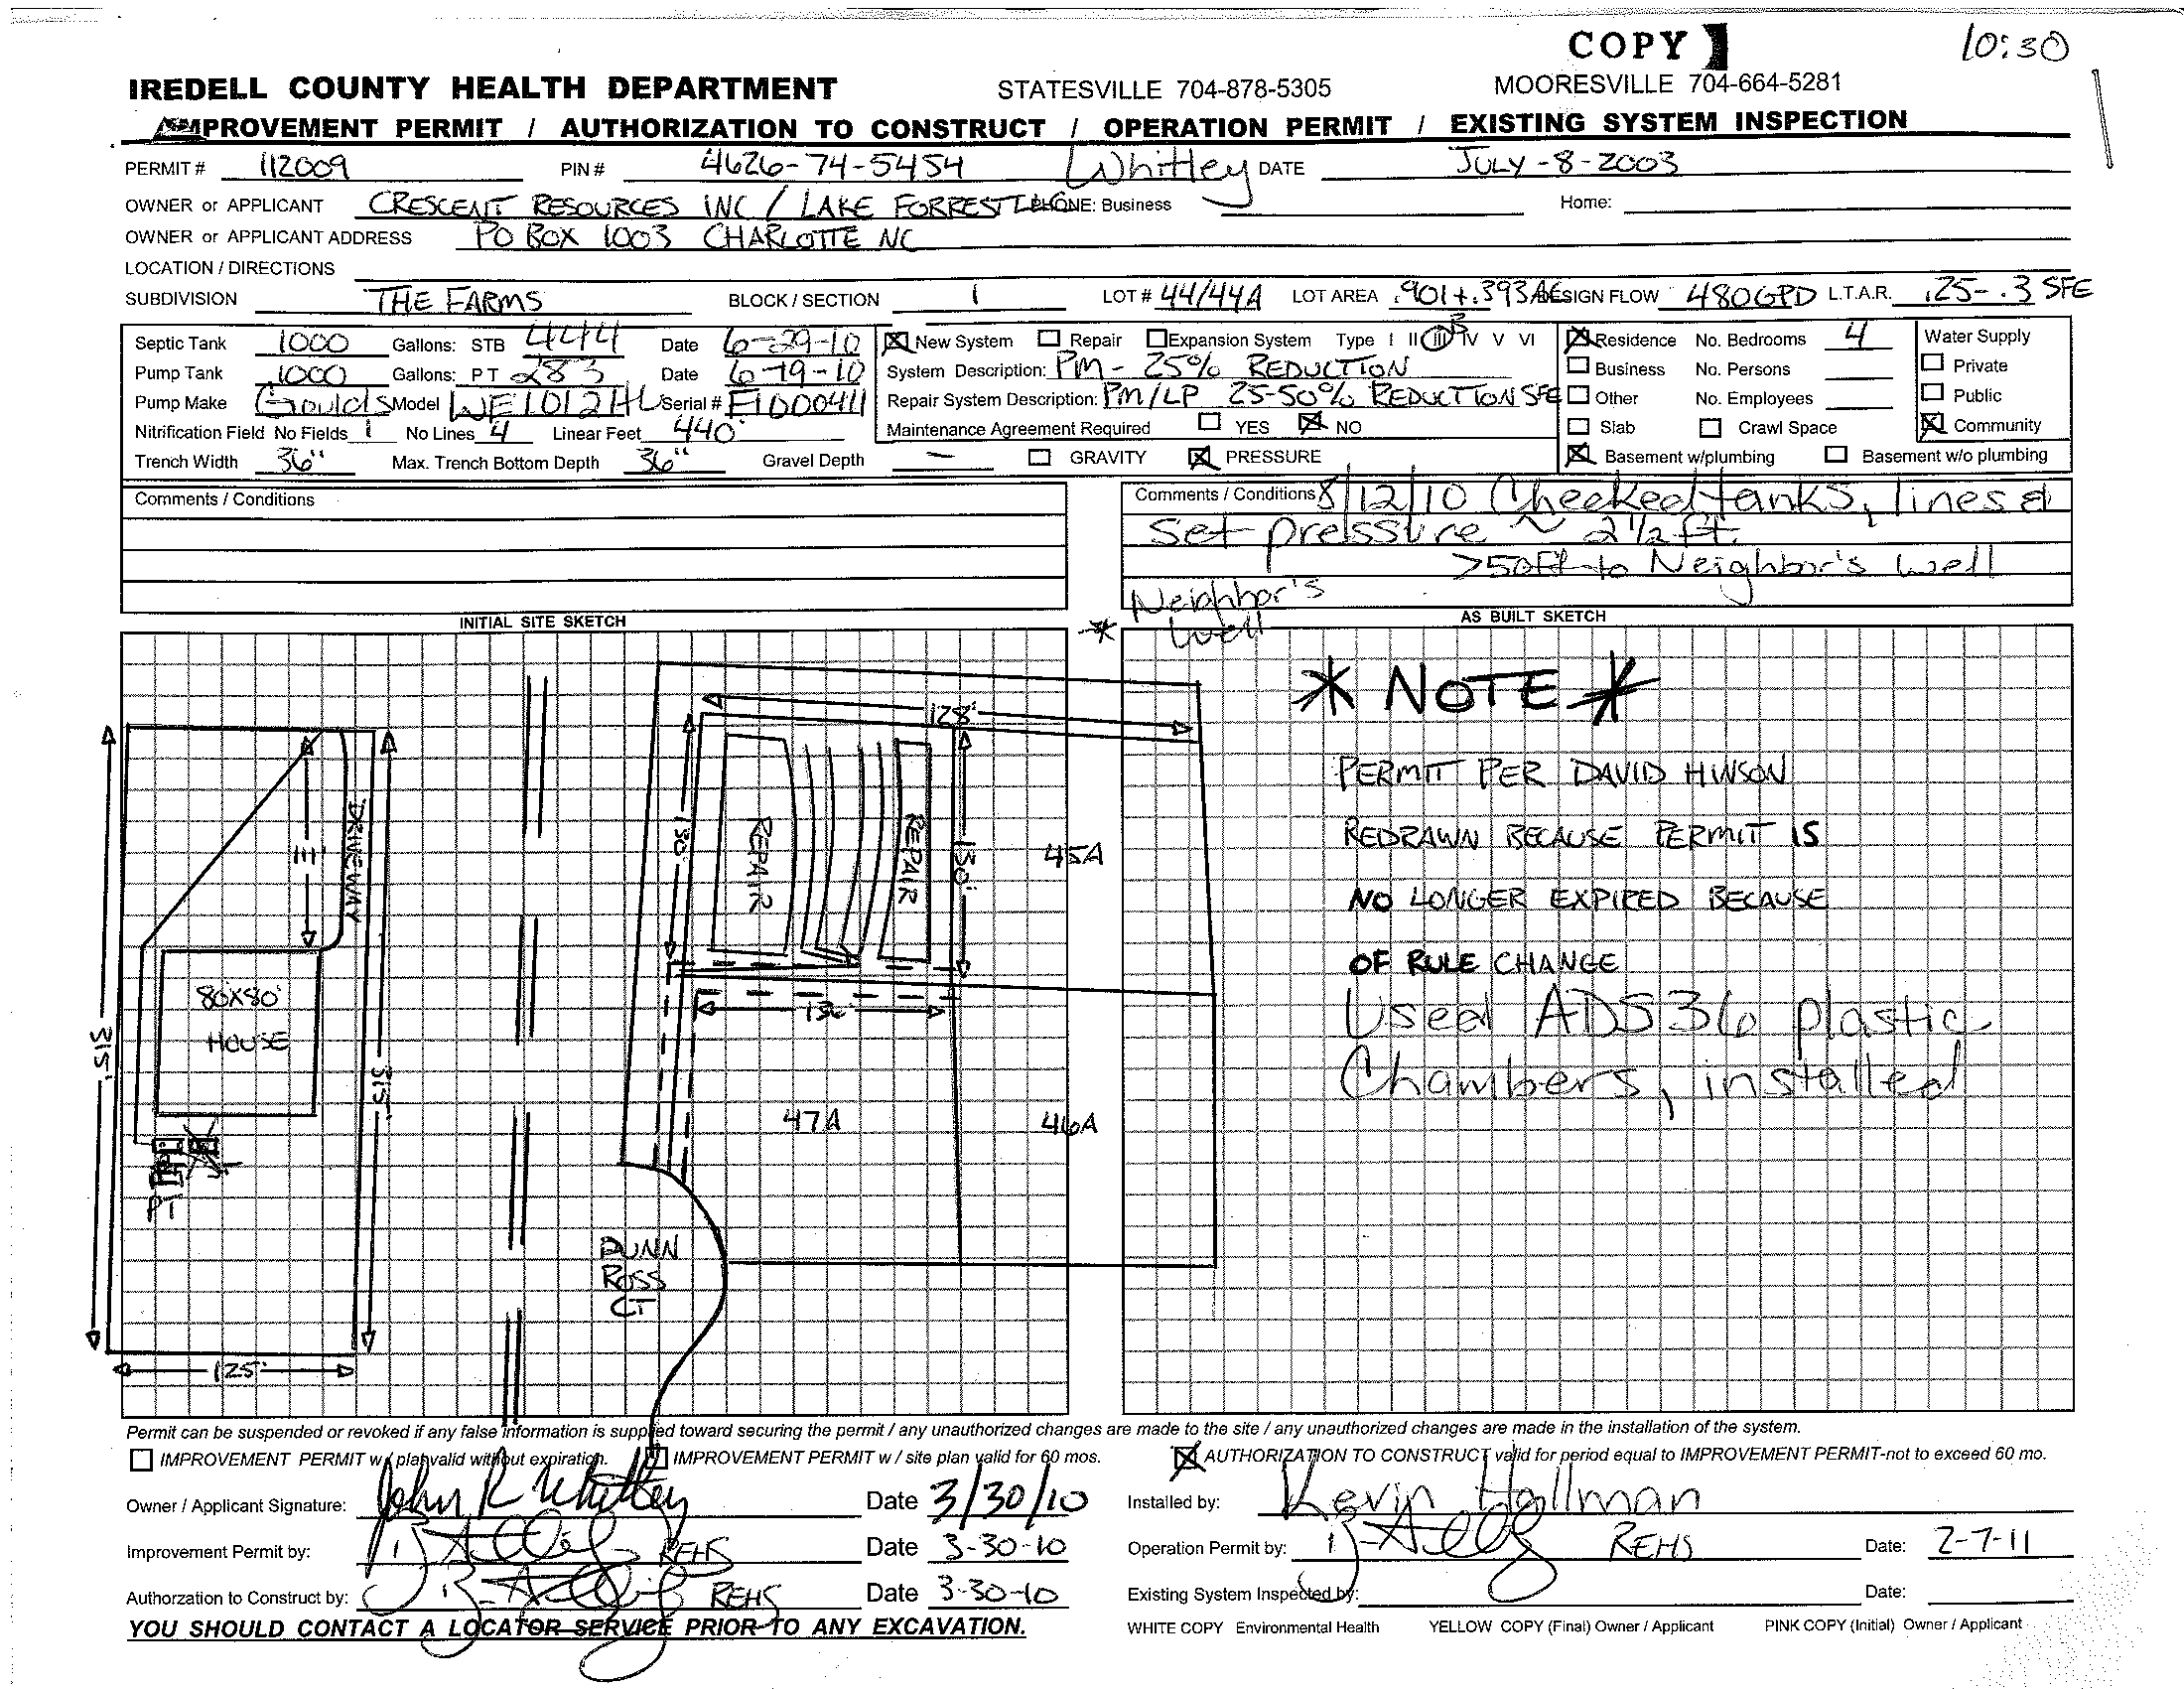 COPY 10:30
IREDELL COUNTY HEALTH DEPARTMENT STATESVILLE 704-878-5305 MOORESVILLE 704-664-5281
IMPROVEMENT PERMIT / AUTHORIZATION TO CONSTRUCT / OPERATION PERMIT / EXISTING SYSTEM INSPECTION
PERMIT # 112009 PIN # 4626-74-5454 Whitley DATE JULY-8-2003
OWNER or APPLICANT CRESCENT RESOURCES INC / LAKE FORREST PHONE: Business Home:
OWNER or APPLICANT ADDRESS PO BOX 1003 CHARLOTTE NC
LOCATION / DIRECTIONS
SUBDIVISION THE FARMS BLOCK / SECTION 1 LOT # 44/44A LOT AREA .901+.393AC DESIGN FLOW 480GPD L.T.A.R. .25-.3 SFE
Septic Tank 1000 Gallons: STB 444 Date 6-29-10 New System Repair Expansion System Type I II III B IV V VI Residence No. Bedrooms 4 Water Supply
Pump Tank 1000 Gallons: PT 283 Date 6-19-10 System Description: PM - 25% REDUCTION Business No. Persons Private
Pump Make Goulds Model WE1012HL Serial # F1000411 Repair System Description: PM/LP 25-50% REDUCTION SFE Other No. Employees Public
Nitrification Field No Fields 1 No Lines 4 Linear Feet 440' Maintenance Agreement Required YES NO Slab Crawl Space Community
Trench Width 36" Max. Trench Bottom Depth 36" Gravel Depth — GRAVITY PRESSURE Basement w/plumbing Basement w/o plumbing
Comments / Conditions
Comments / Conditions 8/12/10 Checked tanks, lines &
set pressure ~ 2 1/2 ft.
>50ft to Neighbor's well
Neighbor's
well
INITIAL SITE SKETCH
AS BUILT SKETCH
128'
130'
REPAIR
REPAIR
130'
45A
111'
DRIVEWAY
80X80'
HOUSE
315'
315'
136'
47A
46A
PT
DUNN
ROSS
CT
125'
* NOTE *
PERMIT PER DAVID HINSON
REDRAWN BECAUSE PERMIT IS
NO LONGER EXPIRED BECAUSE
OF RULE CHANGE
Used ADS 36 plastic
Chambers, installed
Permit can be suspended or revoked if any false information is supplied toward securing the permit / any unauthorized changes are made to the site / any unauthorized changes are made in the installation of the system.
IMPROVEMENT PERMIT w/ plat valid without expiration. IMPROVEMENT PERMIT w / site plan valid for 60 mos. AUTHORIZATION TO CONSTRUCT valid for period equal to IMPROVEMENT PERMIT-not to exceed 60 mo.
Owner / Applicant Signature: John R Whitley Date 3/30/10 Installed by: Kevin Hallman
Improvement Permit by: REHS Date 3-30-10 Operation Permit by: REHS Date: 2-7-11
Authorzation to Construct by: REHS Date 3-30-10 Existing System Inspected by: Date:
YOU SHOULD CONTACT A LOCATOR SERVICE PRIOR TO ANY EXCAVATION. WHITE COPY Environmental Health YELLOW COPY (Final) Owner / Applicant PINK COPY (Initial) Owner / Applicant